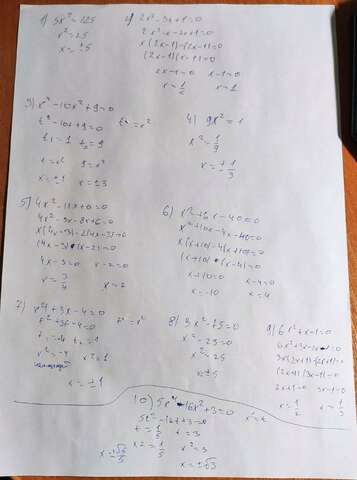 1) 5x² = 125
x² = 25
x = ±5
2) 2x² - 3x + 1 = 0
2x² - x - 2x + 1 = 0
x(2x - 1) - (2x - 1) = 0
(2x - 1)(x - 1) = 0
2x - 1 = 0 x - 1 = 0
x = 1/2 x = 1
3) x⁴ - 10x² + 9 = 0
t² - 10t + 9 = 0 t = x²
t₁ = 1 t₂ = 9
1 = x² 9 = x²
x = ±1 x = ±3
4) 9x² = 1
x² = 1/9
x = ± 1/3
5) 4x² - 11x + 6 = 0
4x² - 3x - 8x + 6 = 0
x(4x - 3) - 2(4x - 3) = 0
(4x - 3)(x - 2) = 0
4x - 3 = 0 x - 2 = 0
x = 3/4 x = 2
6) x² + 6x - 40 = 0
x² + 10x - 4x - 40 = 0
x(x + 10) - 4(x + 10) = 0
(x + 10)(x - 4) = 0
x + 10 = 0 x - 4 = 0
x = -10 x = 4
7) x⁴ + 3x - 4 = 0
t² + 3t - 4 = 0 t = x²
t₁ = -4 t₂ = 1
x² = -4 x² = 1
x = ±1
8) 3x² - 75 = 0
x² - 25 = 0
x² = 25
x = ±5
9) 6x² + x - 1 = 0
6x² + 3x - 2x - 1 = 0
3x(2x + 1) - (2x + 1) = 0
(2x + 1)(3x - 1) = 0
2x + 1 = 0 3x - 1 = 0
x = 1/2 x = 1/3
10) 5x⁴ - 16x² + 3 = 0 x² = t
5t² - 16t + 3 = 0
t = 1/5 t = 3
x² = 1/5 x² = 3
x = ± √5/5 x = ±√3